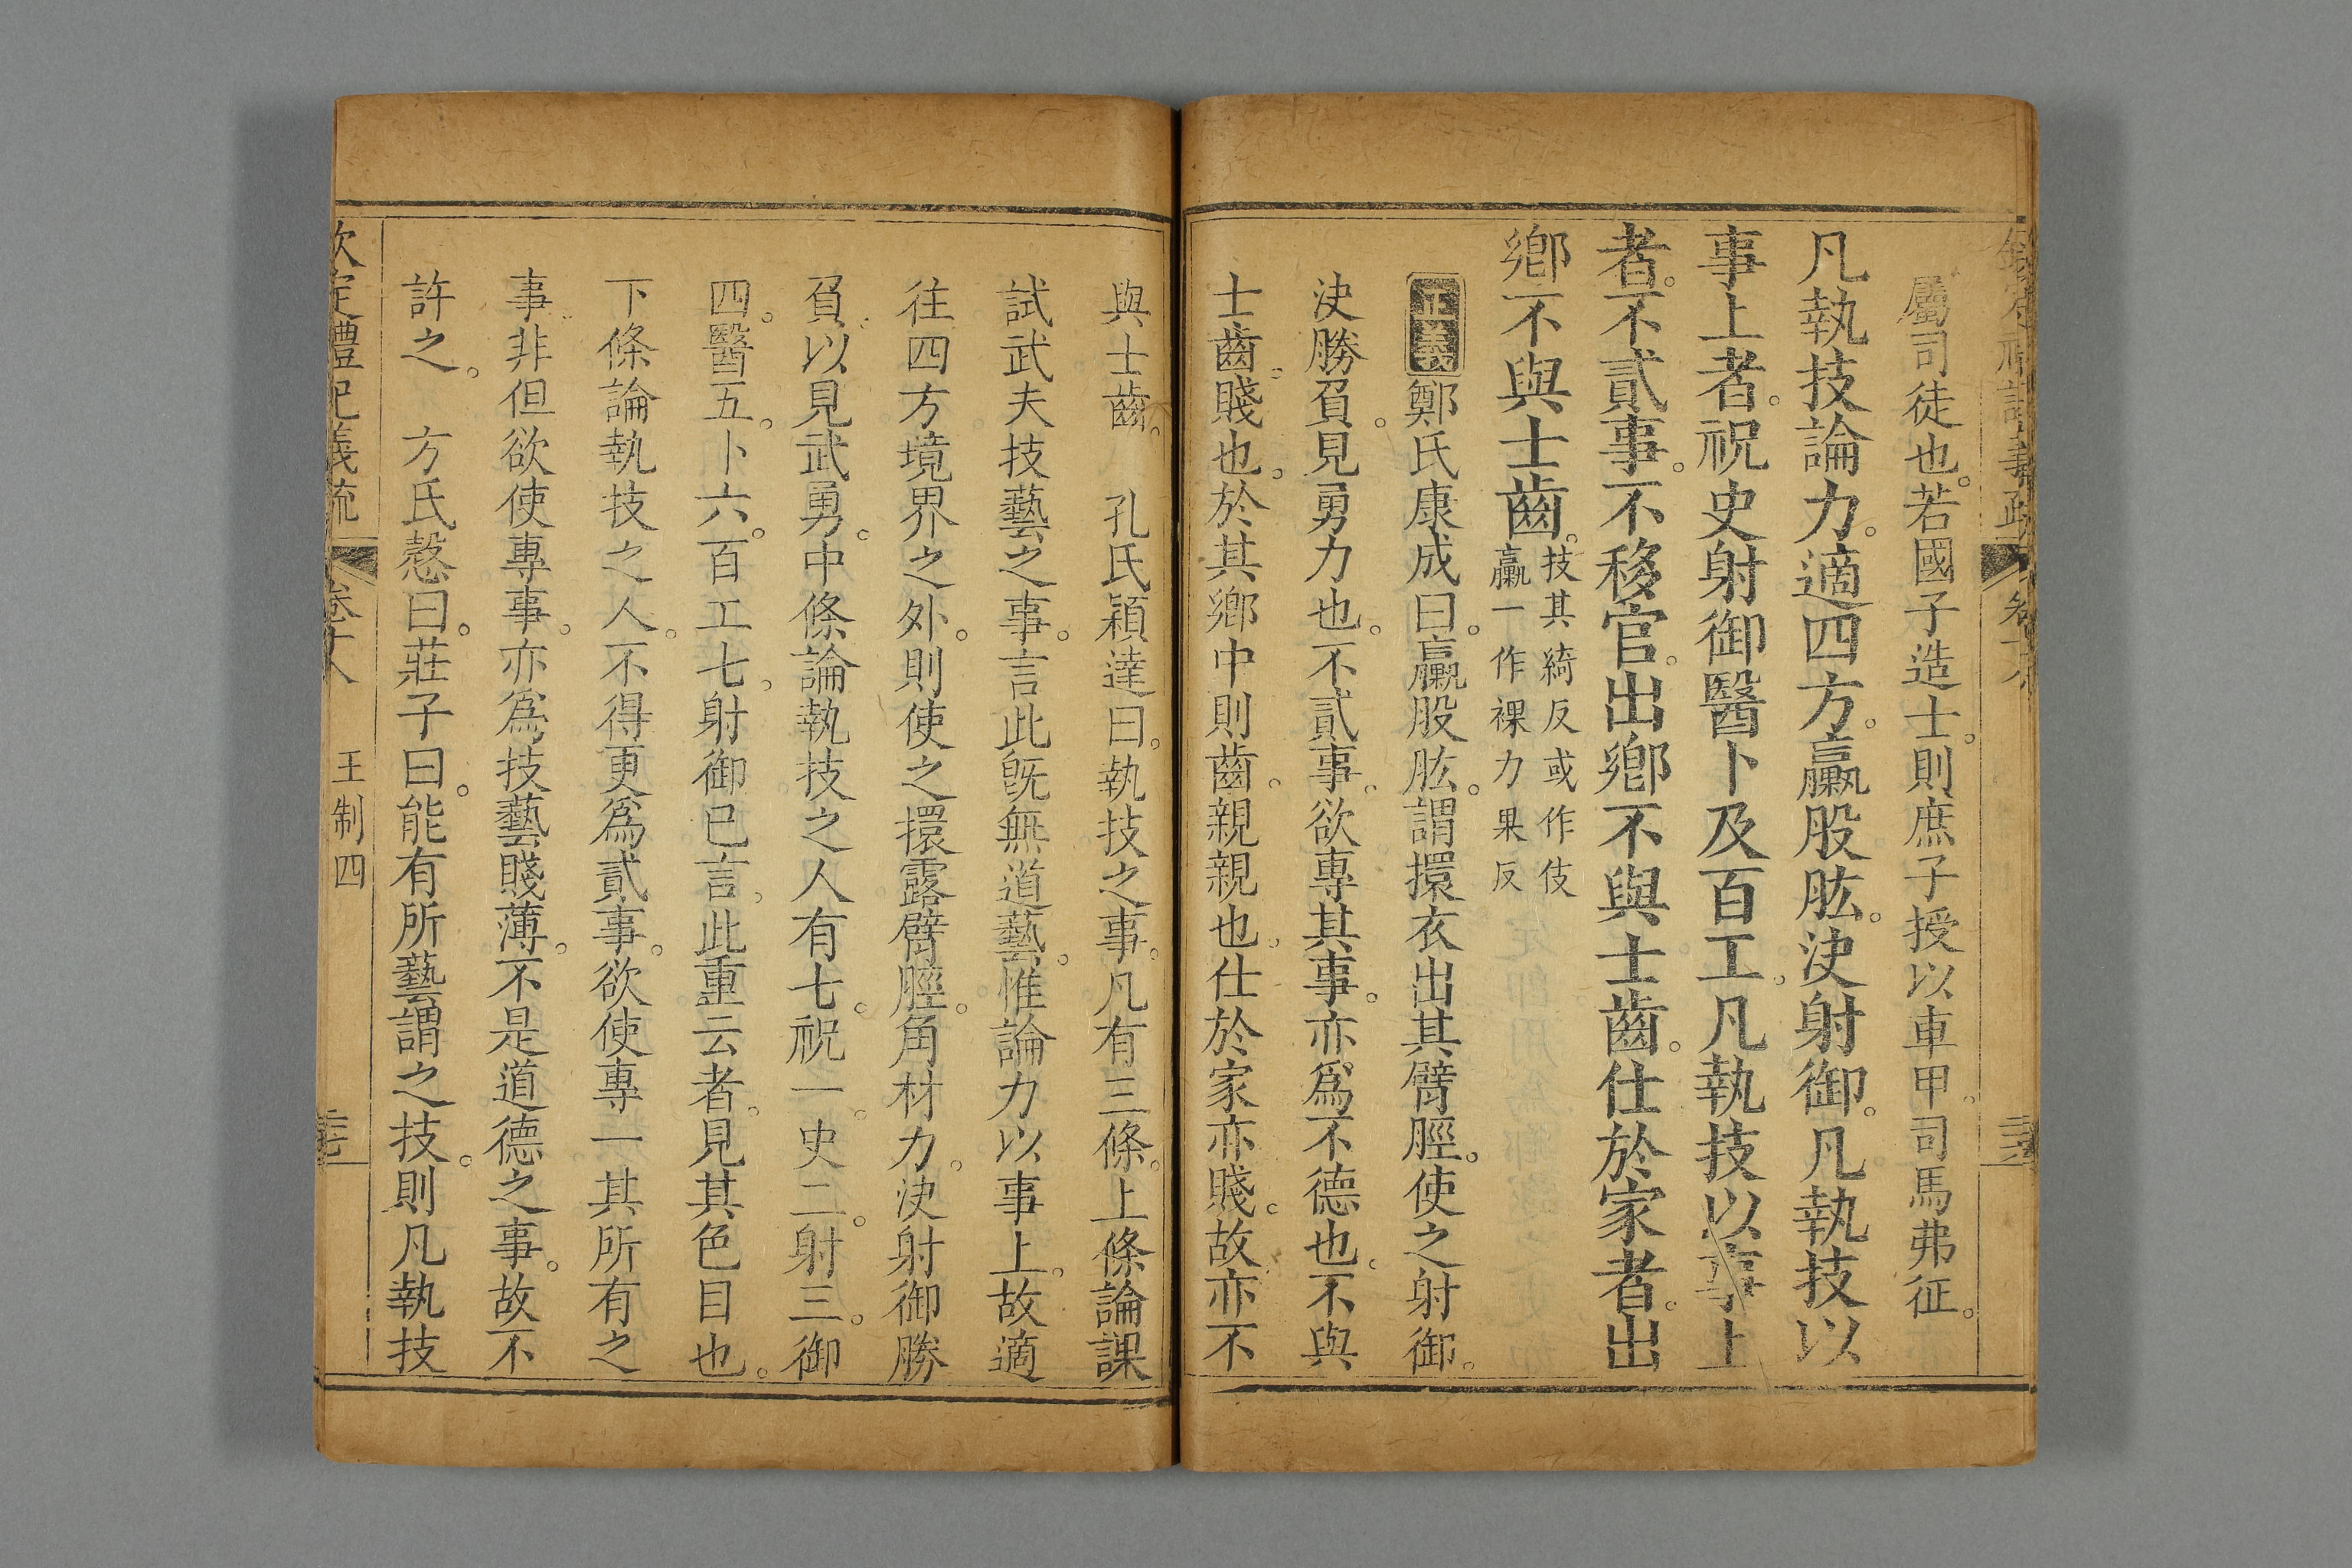 屬司徒也。若國子造士。則庶子授以車甲。司馬弗征。
凡執技論力。適四方。臝股肱。決射御。凡執技以
事上者。祝史射御醫卜及百工。凡執技以事上
者。不貳事。不移官。出鄉不與士齒。仕於家者。出
鄉不與士齒。
技其綺反或作伎
臝一作裸力果反
正義鄭氏康成曰。臝股肱。謂擐衣出其臂脛。使之射御。
決勝負。見勇力也。不貳事。欲專其事。亦爲不德也。不與
士齒。賤也。於其鄉中則齒。親親也。仕於家亦賤。故亦不
與士齒。　孔氏穎達曰。執技之事。凡有三條。上條論課
試武夫技藝之事。言此旣無道藝。惟論力以事上。故適
往四方境界之外。則使之擐露臂脛。角材力。決射御勝
負。以見武勇。中條論執技之人有七。祝一。史二。射三。御
四。醫五。卜六。百工七。射御已言。此重云者。見其色目也。
下條論執技之人。不得更爲貳事。欲使專一其所有之
事。非但欲使專事。亦爲技藝賤薄。不是道德之事。故不
許之。　方氏慤曰。莊子曰。能有所藝謂之技。則凡執技
欽定禮記義疏　卷十八　王制四　三七